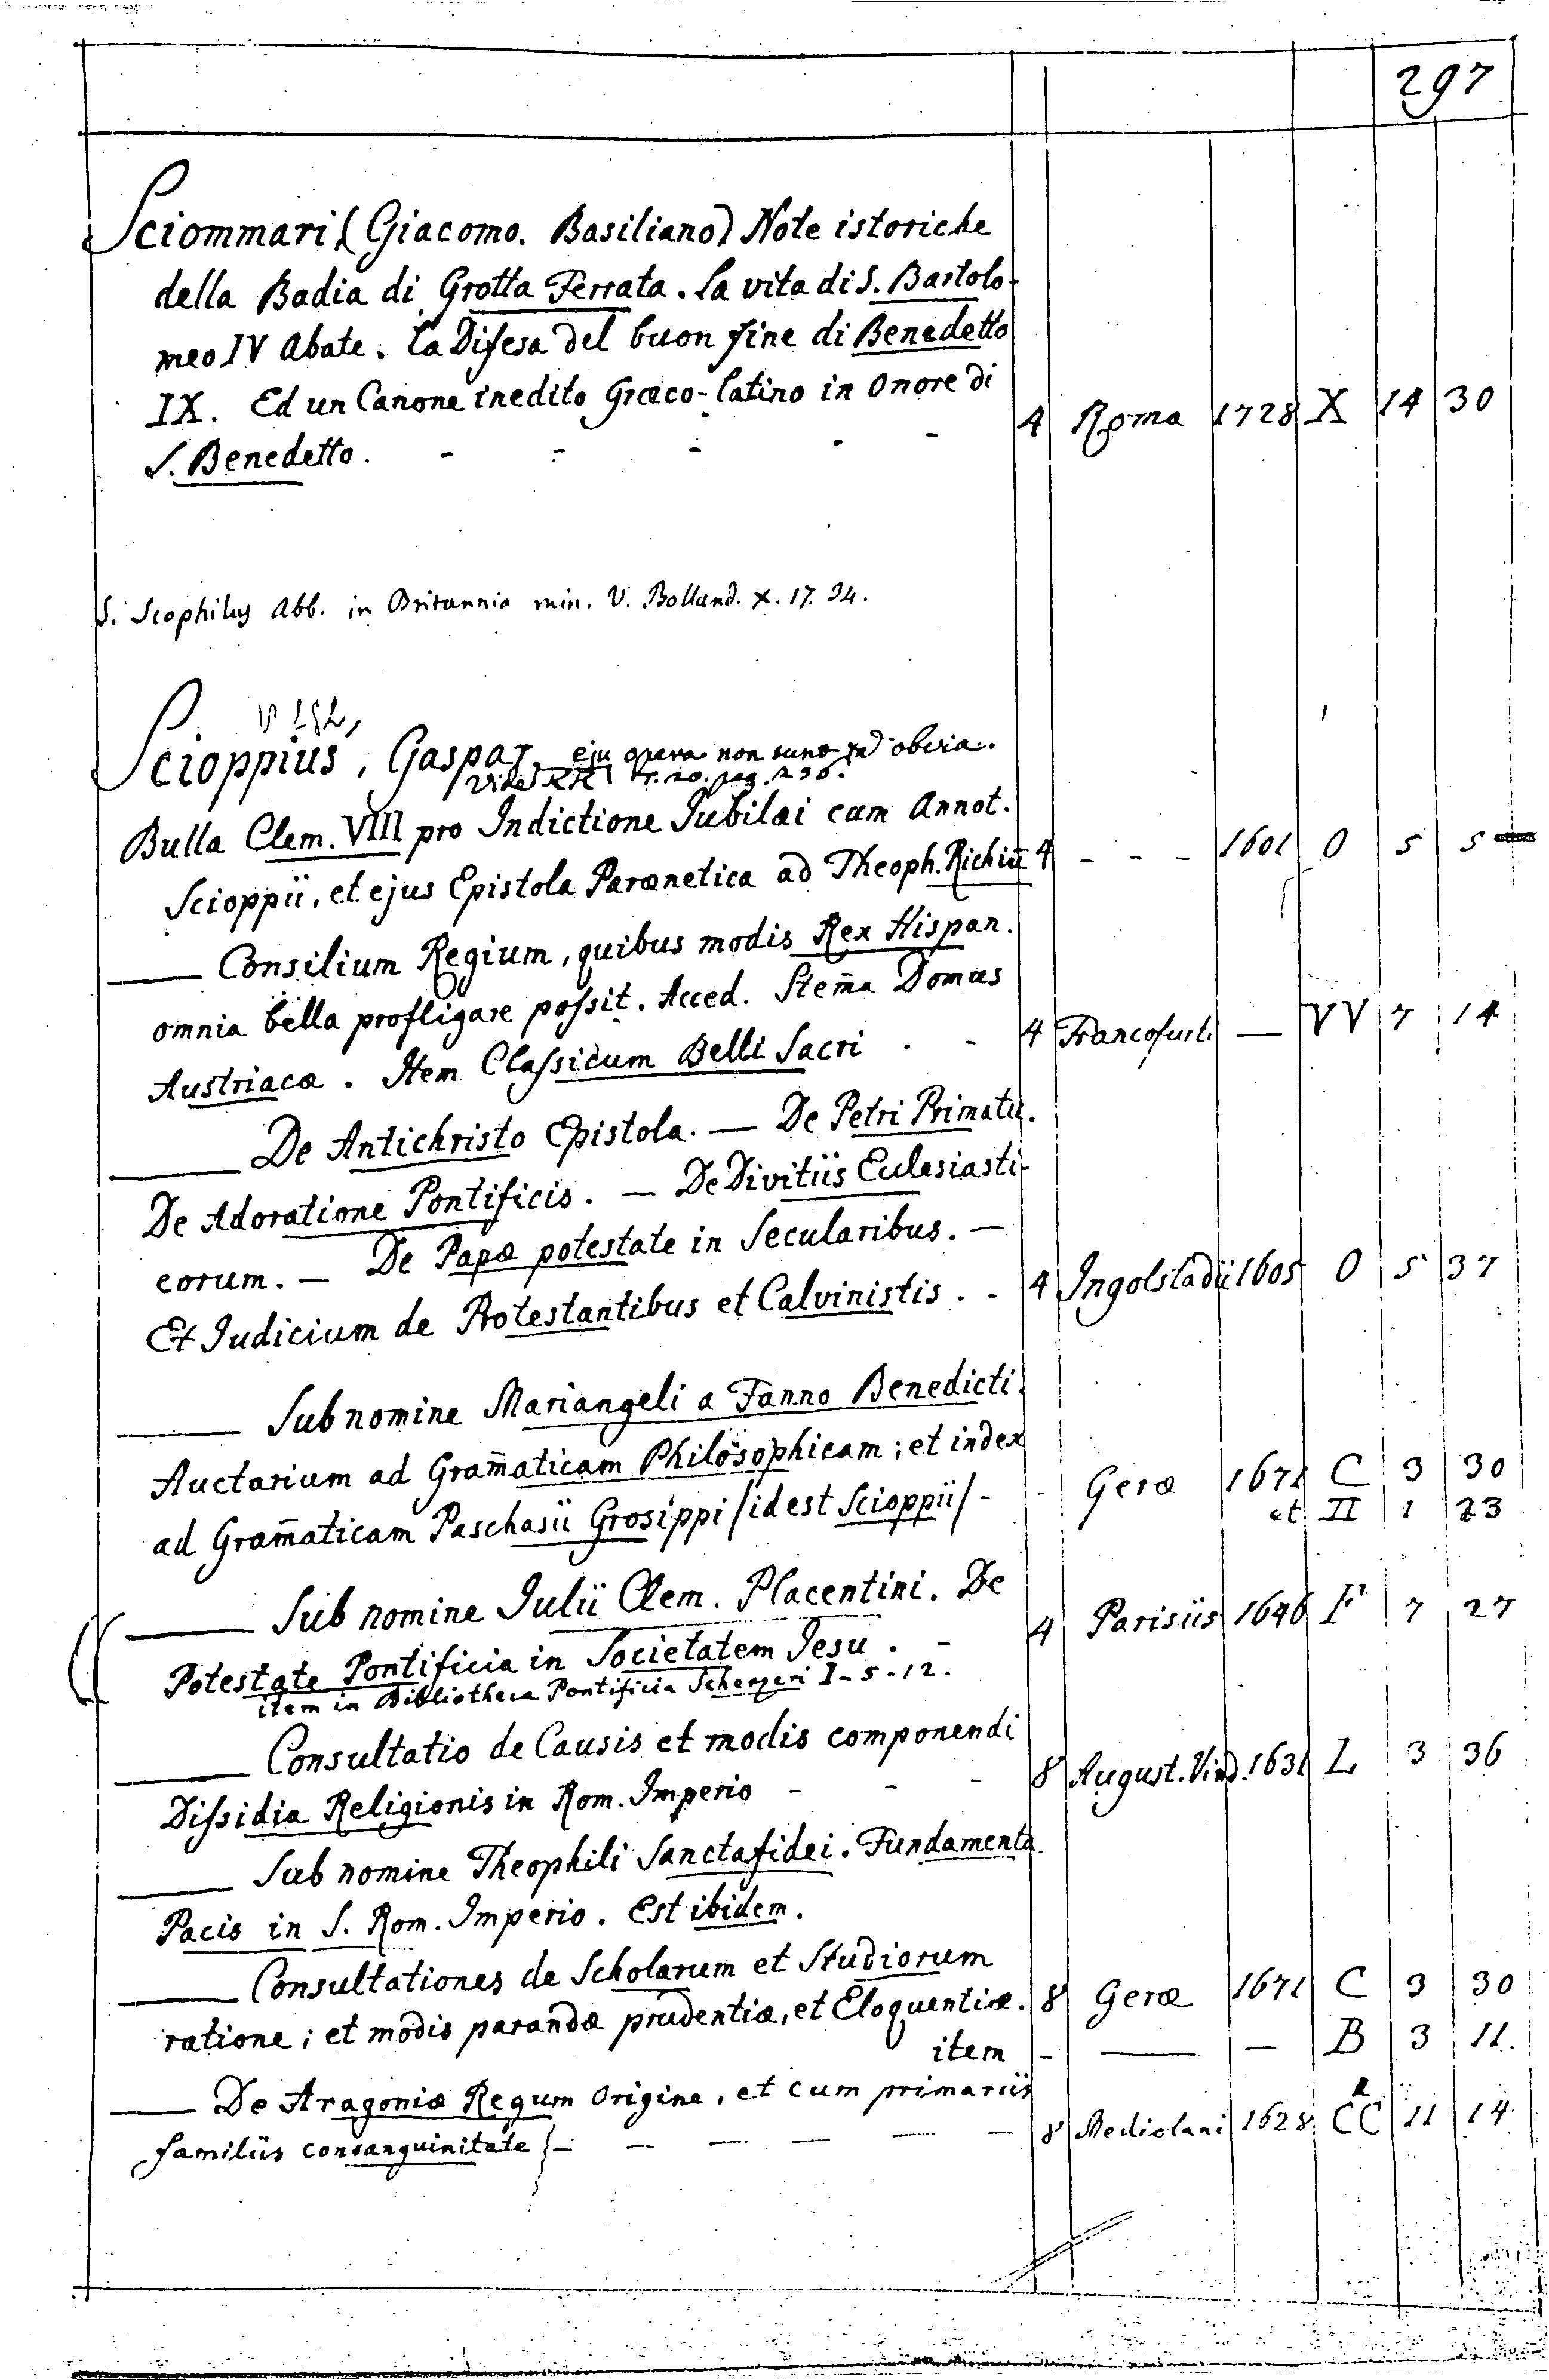 297
Sciommari (Giacomo. Basiliano) Note istoriche
della Badia di Grotta Ferrata. La vita di S. Bartolo-
meo IV Abate. La Difesa del buon fine di Benedetto
IX. Ed un Canone inedito Græco-latino in onore di
S. Benedetto. - - - - - 4 Roma 1728 X 14 30
S. Sciophilus Abb. in Britannia min. V. Bolland. X. 17. 34.
Scioppius, Gaspar, eju opera non sunt obvia.
Vide KK pag. 236.
Bulla Clem. VIII pro Indictione Jubilæi cum Annot.
Scioppii, et ejus Epistola Parænetica ad Theoph. Richiū 4 - - - 1601 O 5 5
— Consilium Regium, quibus modis Rex Hispan.
omnia bella profligare possit. Acced. Stem̄a Domus
Austriacæ. Item Classicum Belli Sacri . - 4 Francofurti — VV 7 14
— De Antichristo Epistola. — De Petri Primatu.
De Adoratione Pontificis. — De Divitiis Eclesiasti-
corum. — De Papæ potestate in Secularibus. —
Et Judicium de Protestantibus et Calvinistis. - 4 Ingolstadii 1605 O 5 37
— Sub nomine Mariangeli a Fanno Benedicti.
Auctarium ad Gram̄aticam Philosophicam; et index
ad Gram̄aticam Paschasii Grosippi /id est Scioppii/ - - Geræ 1671 C 3 30
et II 1 23
— Sub nomine Julii Clem. Placentini. De
Potestate Pontificia in Societatem Jesu. - 4 Parisiis 1646 F 7 27
item in Bibliotheca Pontificia Scherzeri I - 5 - 12.
— Consultatio de Causis et modis componendi
Dissidia Religionis in Rom. Imperio - - - 8 August. Vind. 1631 L 3 36
— Sub nomine Theophili Sanctafidei. Fundamenta
Pacis in S. Rom. Imperio. Est ibidem.
— Consultationes de Scholarum et Studiorum
ratione; et modis parandæ prudentiæ, et Eloquentiæ. 8 Geræ 1671 C 3 30
item - — — B 3 11.
— De Aragoniæ Regum Origine, et cum primariis
familiis consanguinitate - - - - - - 8 Mediolani 1628 CC 11 14